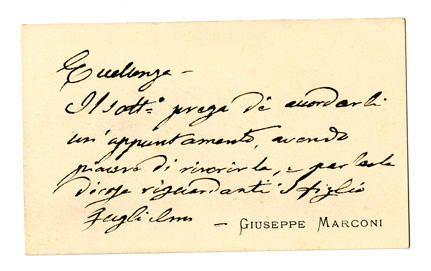 Eccellenza –
Il sott.º prega di accordarli
un'appuntamento, avendo
piacere di riverirla, e parlarle
di cose riguardanti il figlio
Guglielmo – GIUSEPPE MARCONI